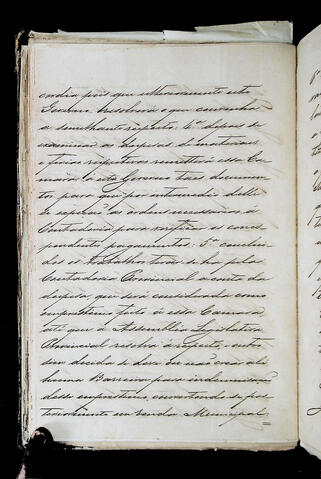 cordia pois que ulteriormente este
Governo resolverá o que convenha
a semelhante respeito; 4º depois de
examinar as despesas de materiaes
e ferias respectivas remetterá essa Ca-
mara a este Governo taes documen-
tos para que por intermedio delle
se expeção as ordens necessarias á
Contadoria para verificar os corres-
pondentes pagamentos. 5º concluí-
dos os trabalhos far-se-ha pela
Contadoria Provincial a conta da
despesa, que será considerada como
emprestimo feito á essa Camara
até que a Assembléa Legislativa
Provincial resolva á respeito, e
bem decida se deve ou não crear ali
huma Barreira para indemnisação
desse emprestimo, convertendo-se pos-
teriormente em renda Municipal=